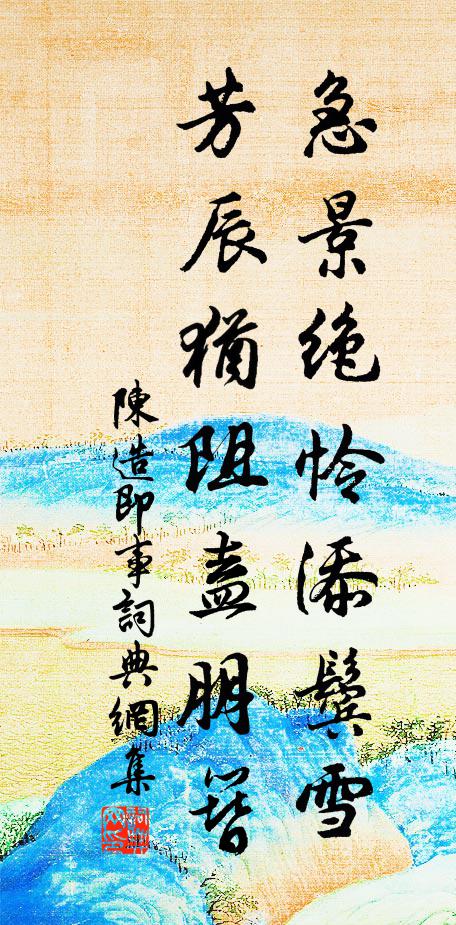 急景绝怜添鬓雪
芳辰猶阻盍朋簪
陳造即事詞典網集